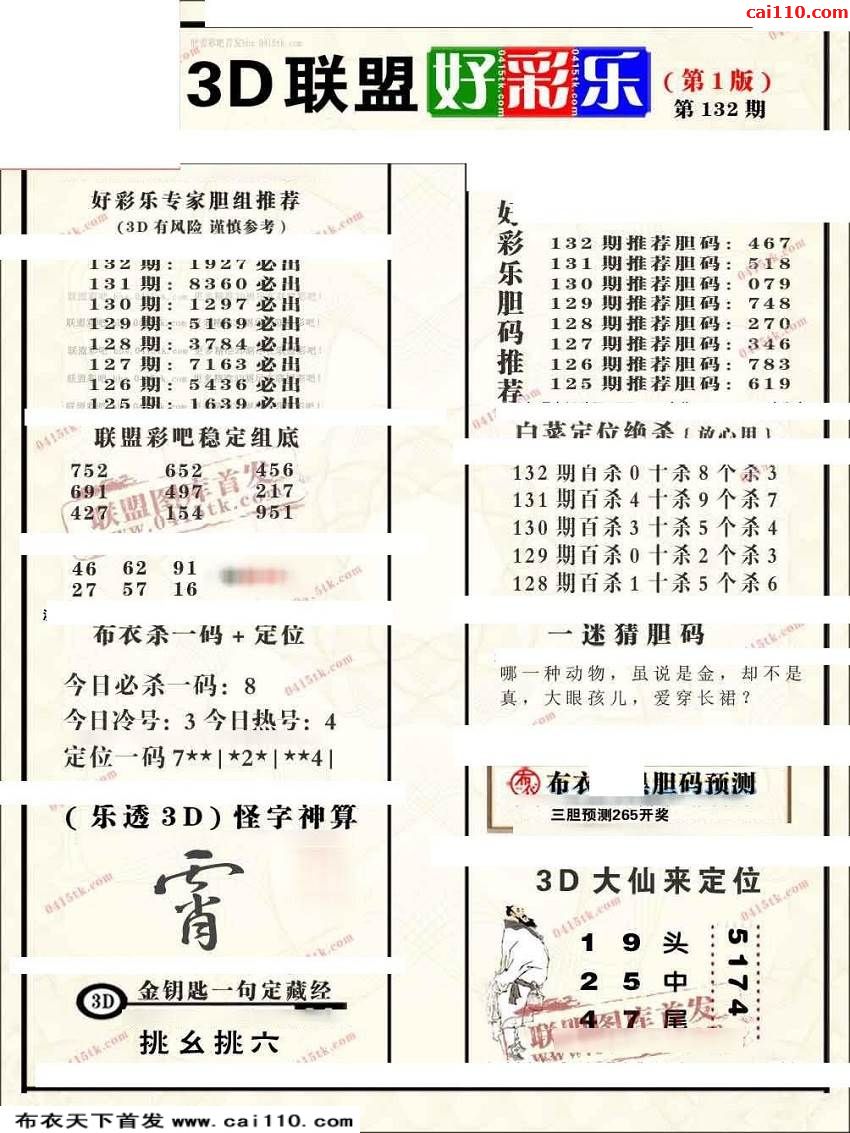 cai110.com
3D联盟好彩乐
(第1版)
第132期
好彩乐专家胆组推荐
(3D有风险 谨慎参考)
132期: 1927必出
131期: 8360必出
130期: 1297必出
129期: 5169必出
128期: 3784必出
127期: 7163必出
126期: 5436必出
125期: 1639必出
联盟彩吧稳定组底
752 652 456
691 497 217
427 154 951
46 62 91
27 57 16
布衣杀一码+定位
今日必杀一码: 8
今日冷号: 3 今日热号: 4
定位一码 7**|*2*|**4|
(乐透3D) 怪字神算
霄
3D 金钥匙一句定藏经
挑幺挑六
好彩乐胆码推荐
132期推荐胆码: 467
131期推荐胆码: 518
130期推荐胆码: 079
129期推荐胆码: 748
128期推荐胆码: 270
127期推荐胆码: 346
126期推荐胆码: 783
125期推荐胆码: 619
白菜定位绝杀(放心用)
132期百杀0十杀8个杀3
131期百杀4十杀9个杀7
130期百杀3十杀5个杀4
129期百杀0十杀2个杀3
128期百杀1十杀5个杀6
一迷猜胆码
哪一种动物，虽说是金，却不是
真，大眼孩儿，爱穿长裙？
布衣 胆码预测
三胆预测265开奖
3D大仙来定位
1 9 头
2 5 中
4 7 尾
5174
联盟图库首发
www.0415tk.com
布衣天下首发 www.cai110.com